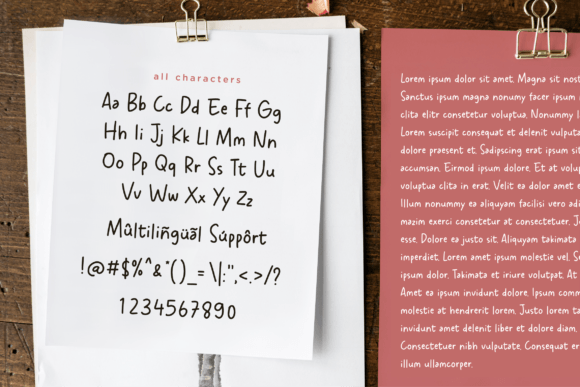 all characters
Aa Bb Cc Dd Ee Ff Gg
Hh Ii Jj Kk Ll Mm Nn
Oo Pp Qq Rr Ss Tt Uu
Vv Ww Xx Yy Zz
Mûltilíñgüãl Súppôrt
!@#$%^&*()_=\|:",<.>/?
1234567890
Lorem ipsum dolor sit amet. Magna sit nost
Sanctus ipsum magna nonumy facer ipsum
clita elitr consetetur voluptua. Nonummy
Lorem suscipit consequat et delenit vulputa
dolore praesent et. Sadipscing erat ipsum sit
accumsan. Eirmod ipsum dolore. Et at volup
voluptua clita in erat. Velit ea dolor amet
Illum nonummy ea aliquyam facilisi vero
mazim exerci consetetur at consectetuer.
esse. Dolore ea justo sit. Aliquyam takimata
imperdiet. Lorem amet ipsum molestie vel.
ipsum dolor. Takimata et iriure volutpat. At
Amet ea ipsum invidunt dolore. Ipsum comm
molestie at hendrerit lorem. Justo lorem
invidunt amet delenit liber et dolore diam.
Consectetuer nibh vulputate. Consequat er
illum ullamcorper.